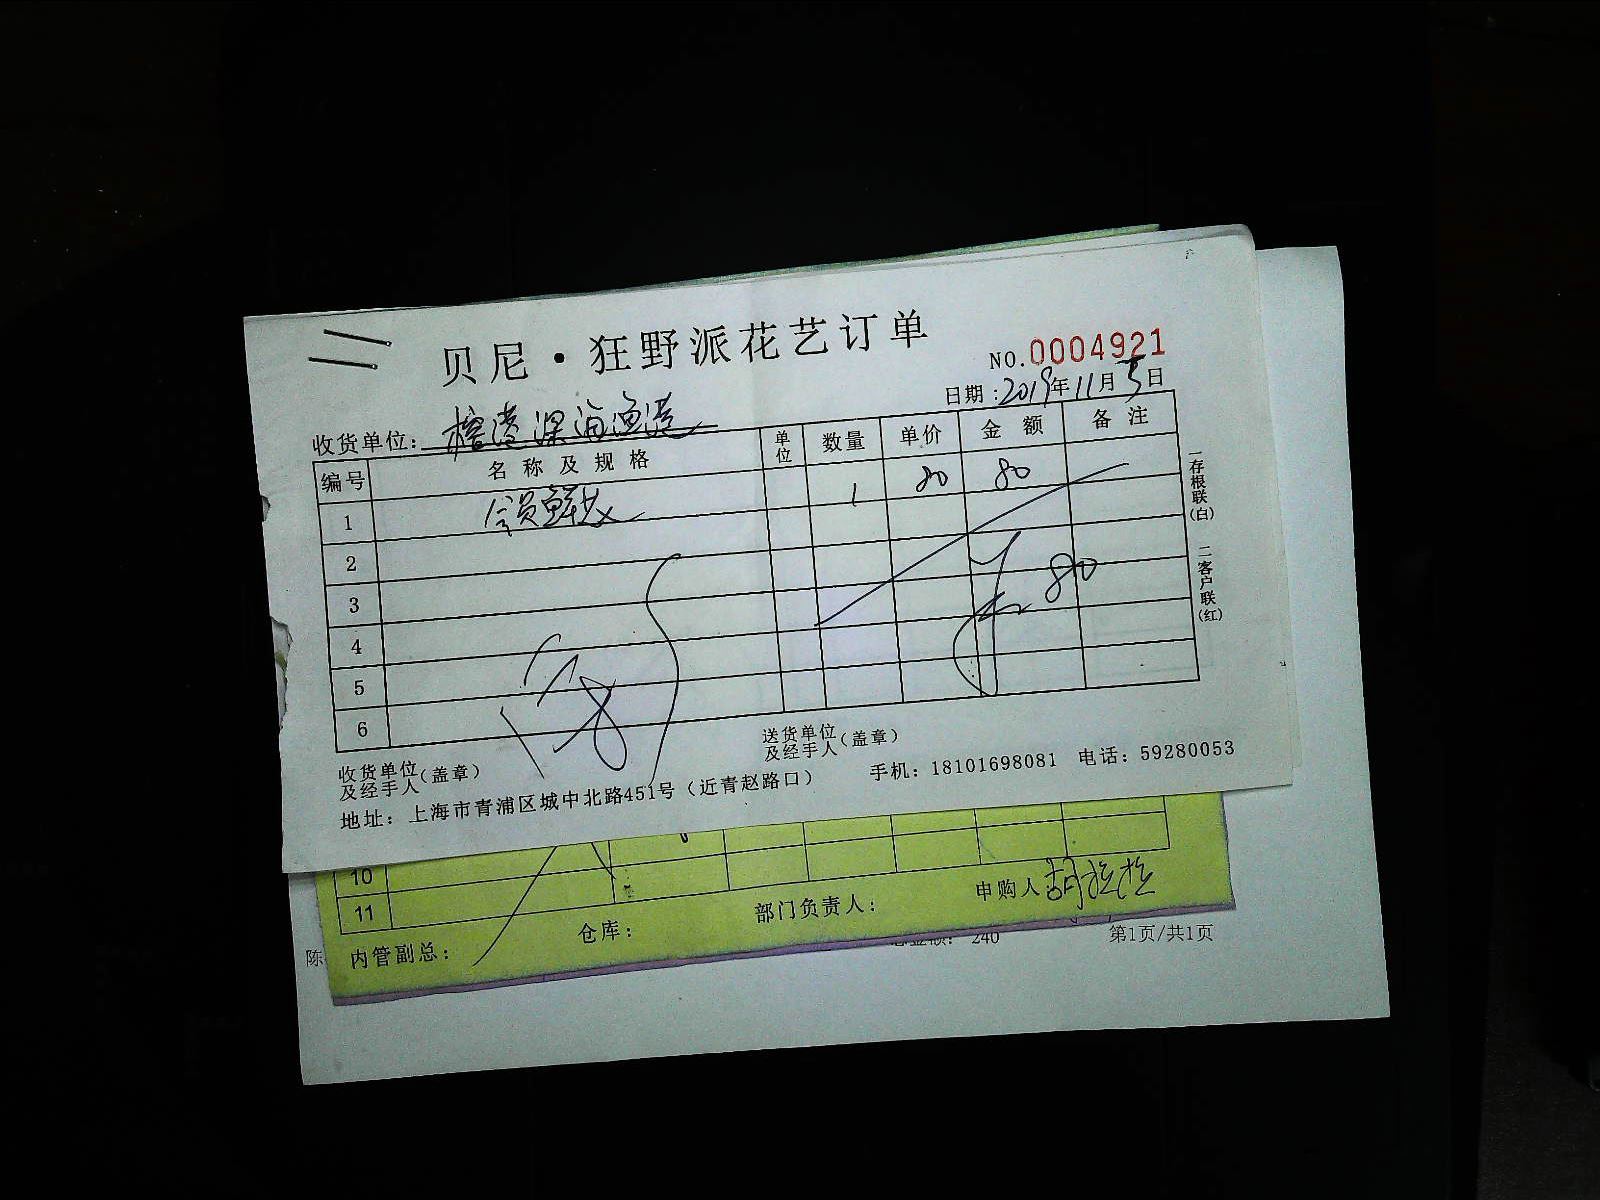 贝尼·狂野派花艺订单
NO.0004921
日期:2019年11月5日
收货单位:
编号 名称及规格 单位 数量 单价 金额 备注
1 会员鲜花 1 80 80
2
3 80
4
5
6
一存根联(白) 二客户联(红)
收货单位及经手人(盖章)
送货单位及经手人(盖章)
地址:上海市青浦区城中北路451号(近青赵路口) 手机:18101698081 电话:59280053
10
11
内管副总: 仓库: 部门负责人: 申购人
陈 240 第1页/共1页